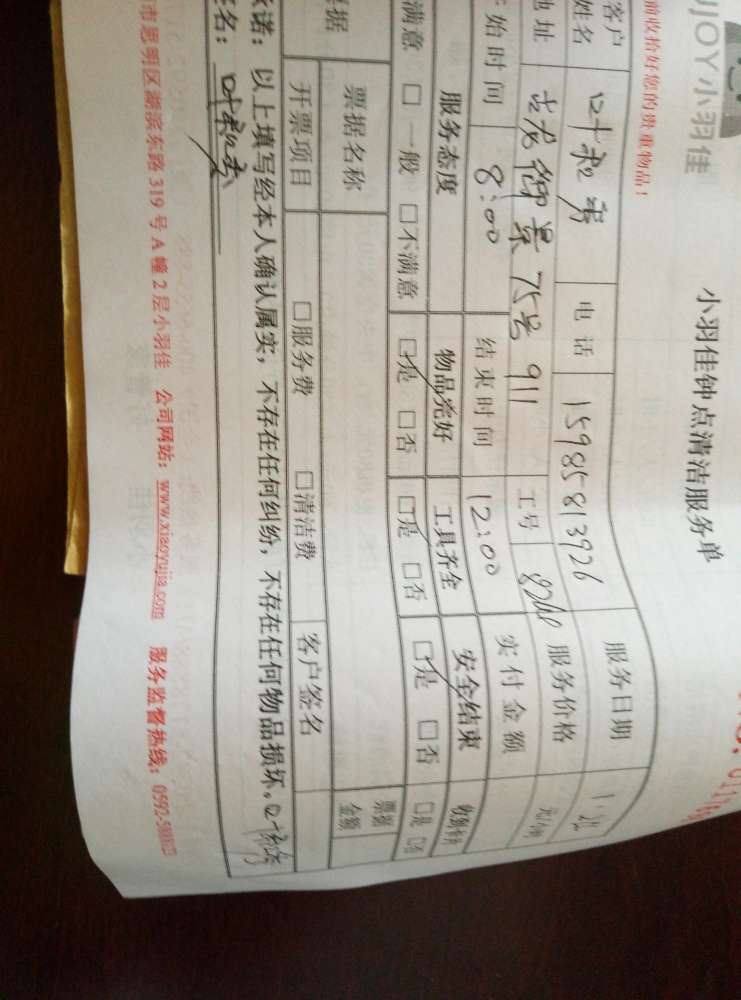 JOY小羽佳
小羽佳钟点清洁服务单
前收拾好您的贵重物品！
客户姓名 电话 15985813926 服务日期
地址 古龙御景75号911 工号 服务价格 元/小时
始时间 8:00 结束时间 12:00 实付金额
服务态度 物品完好 工具齐全 安全结束
满意 □一般 □不满意 □是 □否 □是 □否 □是 □否 □是
票据名称 票据金额
开票项目 □服务费 □清洁费 客户签名
诺：以上填写经本人确认属实，不存在任何纠纷，不存在任何物品损坏。
名：
市思明区湖滨东路319号A幢2层小羽佳 公司网站：www.xiaoyujia.com 服务监督热线：0592-